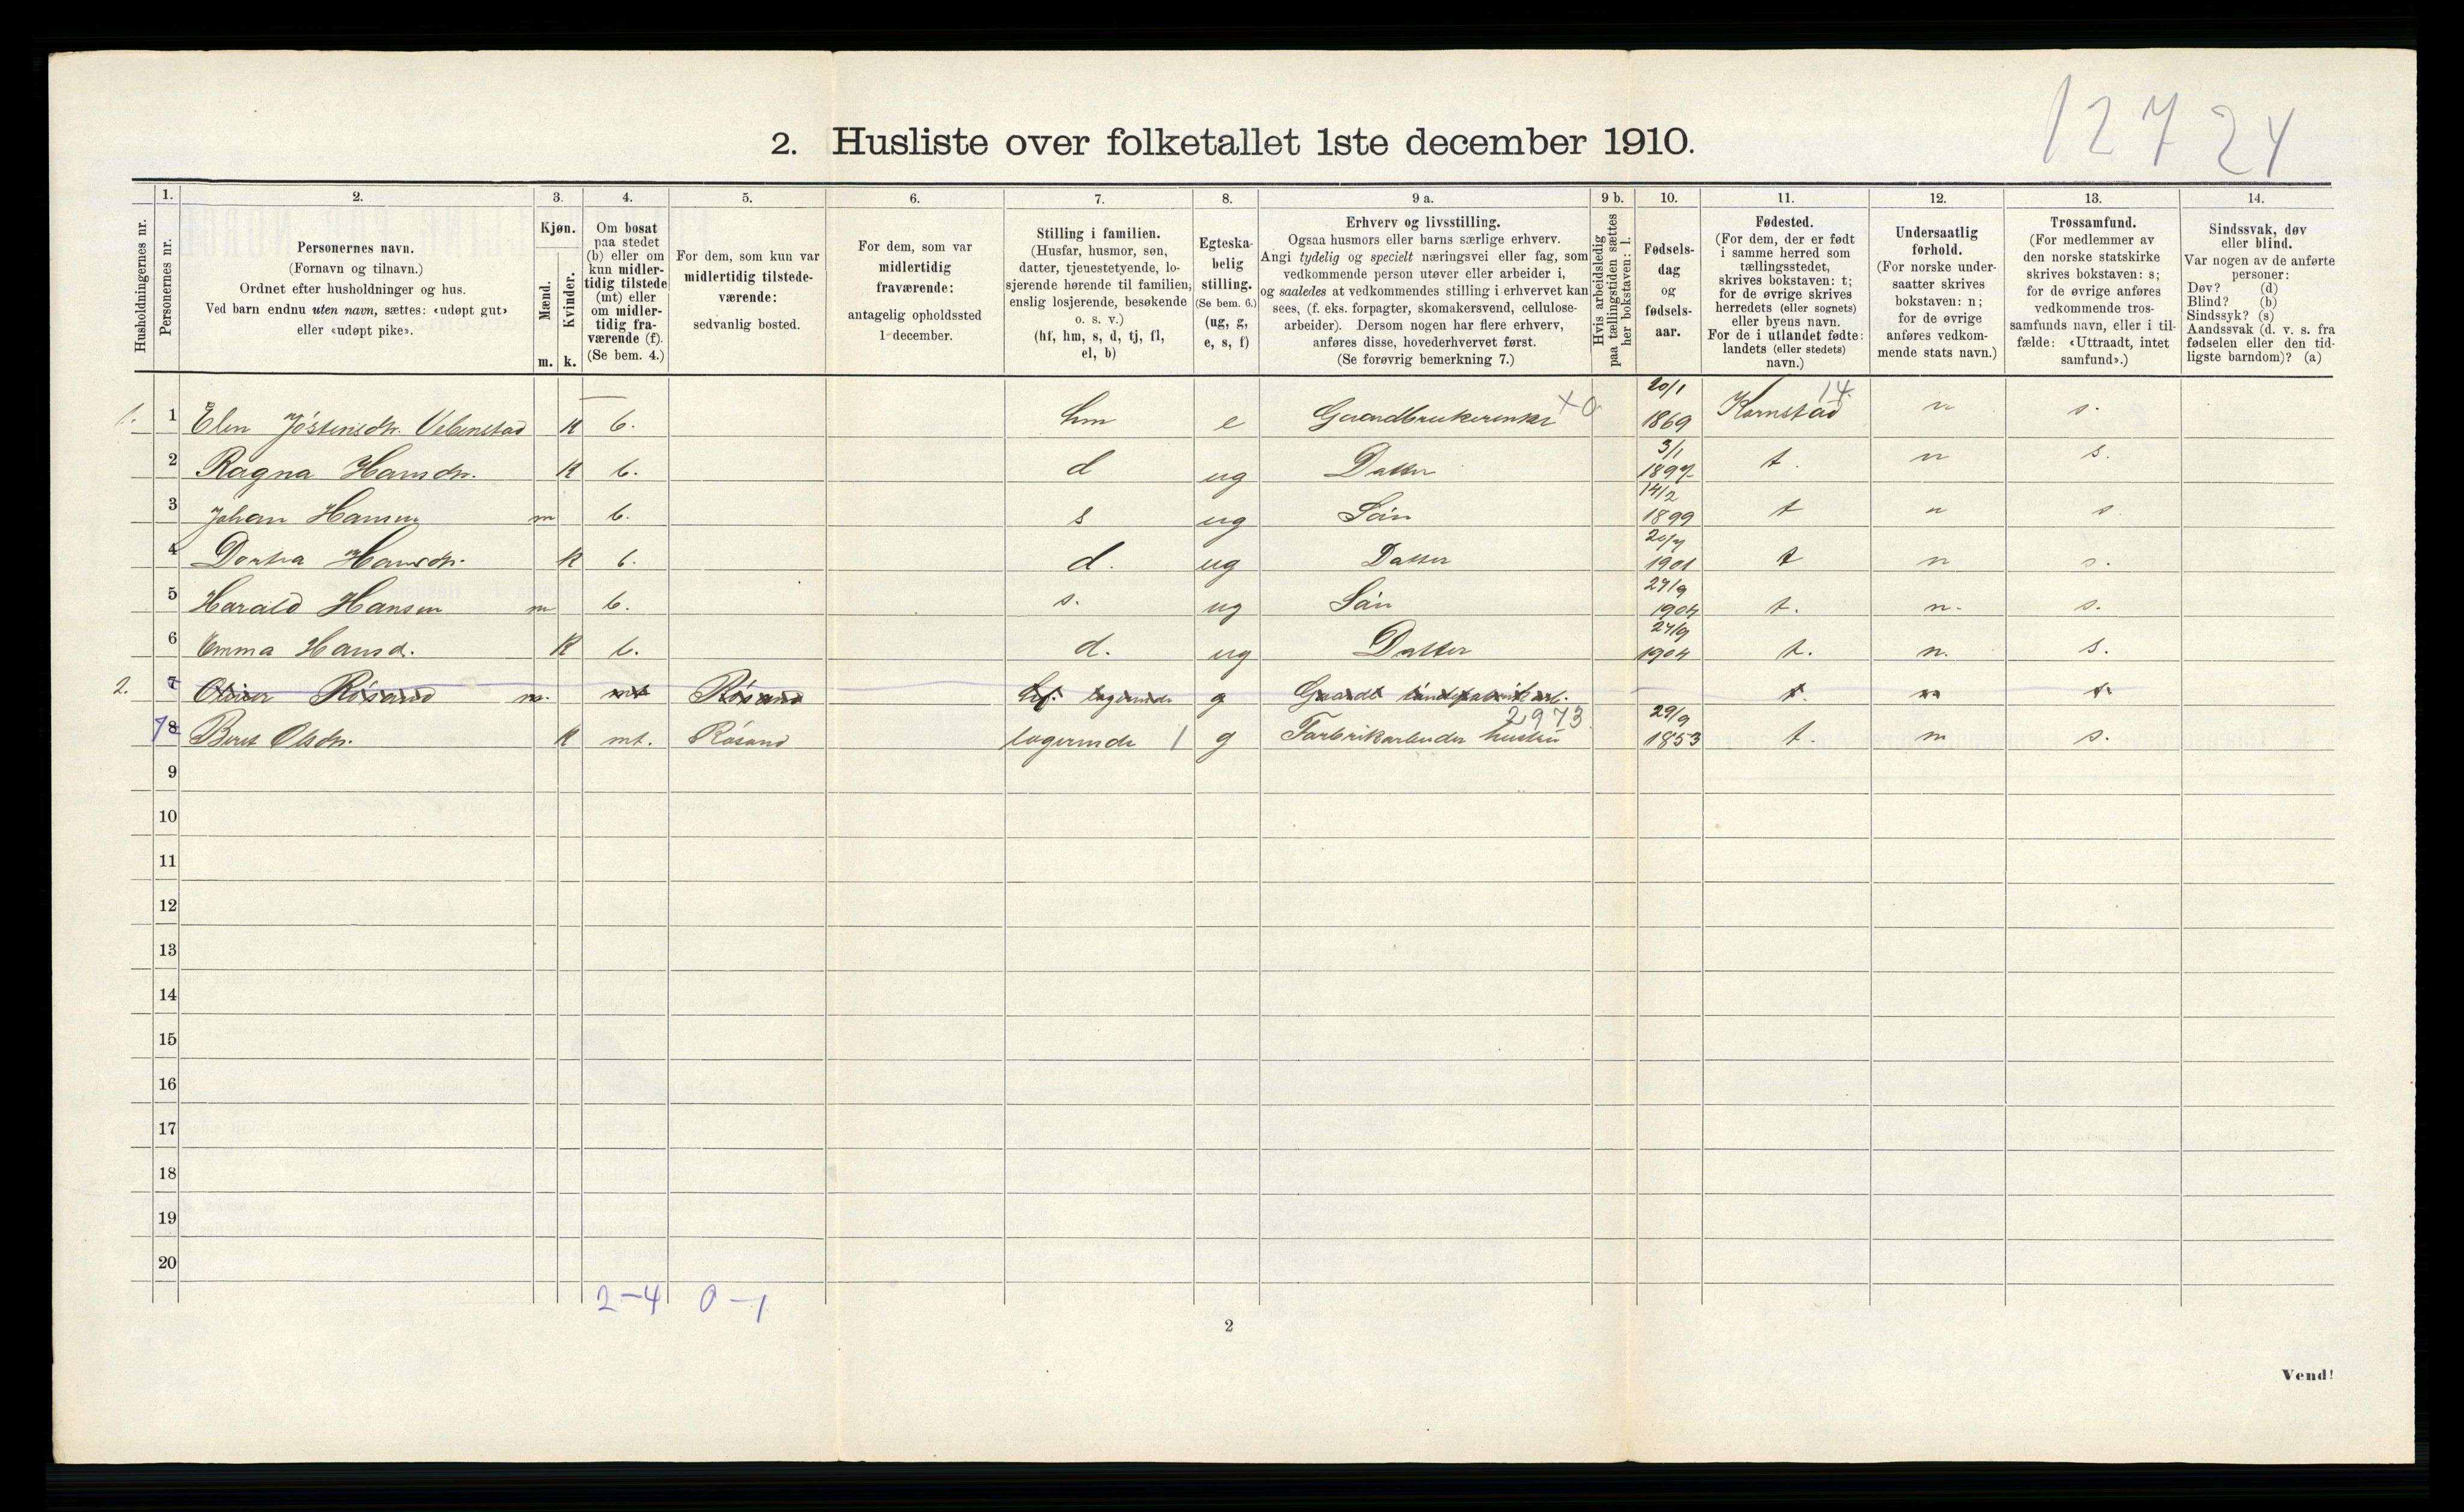 12724
2. Husliste over folketallet 1ste december 1910.
Husholdningernes nr.
1.
Personernes nr.
2.
Personernes navn.
(Fornavn og tilnavn.)
Ordnet efter husholdninger og hus.
Ved barn endnu uten navn, sættes: «udøpt gut»
eller «udøpt pike».
3.
Kjøn.
Mænd.
Kvinder.
m. k.
4.
Om bosat
paa stedet
(b) eller om
kun midler-
tidig tilstede
(mt) eller
om midler-
tidig fra-
værende (f).
(Se bem. 4.)
5.
For dem, som kun var
midlertidig tilstede-
værende:
sedvanlig bosted.
6.
For dem, som var
midlertidig
fraværende:
antagelig opholdssted
1 december.
7.
Stilling i familien.
(Husfar, husmor, søn,
datter, tjenestetyende, lo-
sjerende hørende til familien,
enslig losjerende, besøkende
o. s. v.)
(hf, hm, s, d, tj, fl,
el, b)
8.
Egteska-
belig
stilling.
(Se bem. 6.)
(ug, g,
e, s, f)
9 a.
Erhverv og livsstilling.
Ogsaa husmors eller barns særlige erhverv.
Angi tydelig og specielt næringsvei eller fag, som
vedkommende person utøver eller arbeider i,
og saaledes at vedkommendes stilling i erhvervet kan
sees, (f. eks. forpagter, skomakersvend, cellulose-
arbeider). Dersom nogen har flere erhverv,
anføres disse, hovederhvervet først.
(Se forøvrig bemerkning 7.)
9 b.
Hvis arbeidsledig
paa tællingstiden sættes
her bokstaven: l.
10.
Fødsels-
dag
og
fødsels-
aar.
11.
Fødested.
(For dem, der er født
i samme herred som
tællingsstedet,
skrives bokstaven: t;
for de øvrige skrives
herredets (eller sognets)
eller byens navn.
For de i utlandet fødte:
landets (eller stedets)
navn.)
12.
Undersaatlig
forhold.
(For norske under-
saatter skrives
bokstaven: n;
for de øvrige
anføres vedkom-
mende stats navn.)
13.
Trossamfund.
(For medlemmer av
den norske statskirke
skrives bokstaven: s;
for de øvrige anføres
vedkommende tros-
samfunds navn, eller i til-
fælde: «Uttraadt, intet
samfund».)
14.
Sindssvak, døv
eller blind.
Var nogen av de anførte
personer:
Døv? (d)
Blind? (b)
Sindssyk? (s)
Aandssvak (d. v. s. fra
fødselen eller den tid-
ligste barndom)? (a)
1. 1 Elen Jóstensdtr. k b. hm e Gaardbrukerenke x 0 20/1 1869 Kornstad 14 n s.
2 Ragna Hansdtr. k b. d ug Datter 3/1 1897 t. n s.
3 Johan Hansen m b. s ug Són 14/2 1899 t n s
4 Dortea Hansdtr. k b. d. ug Datter 20/7 1901 t n s.
5 Harald Hansen m b. s. ug Són 27/9 1904 t. n. s.
6 Emma Hansd. k b. d. ug Datter 27/9 1904 t. n. s.
2. 7 Rósand m. mt Rósand hf. logerende g t. n s
2973
7 8 Beret Olsdtr. k mt. Rósand logerende 1 g Fabrikarbeider hustru 29/9 1853 t. n s.
9
10
11
12
13
14
15
16
17
18
19
20
2-4 0-1
2
Vend!